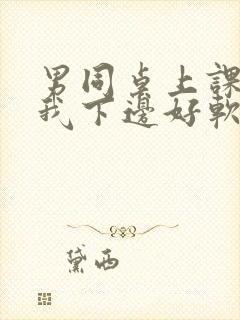 男同桌上課
我下邊好軟
黛西